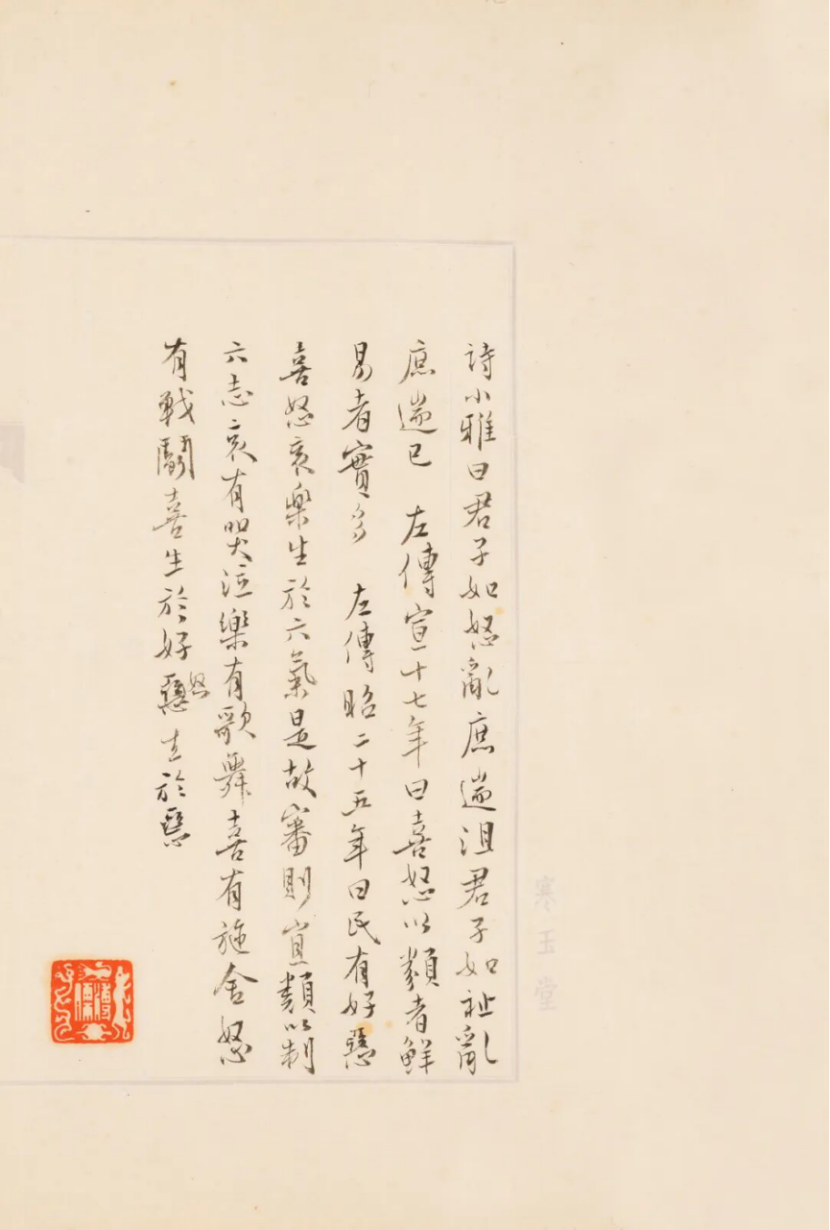 詩小雅曰君子如怒亂庶遄沮君子如祉亂
庶遄已 左傳宣十七年曰喜怒以類者鮮
易者實多 左傳昭二十五年曰民有好惡
喜怒哀樂生於六氣是故審則宜類以制
六志哀有哭泣樂有歌舞喜有施舍怒
有戰鬭喜生於好惡怒生於惡
寒玉堂